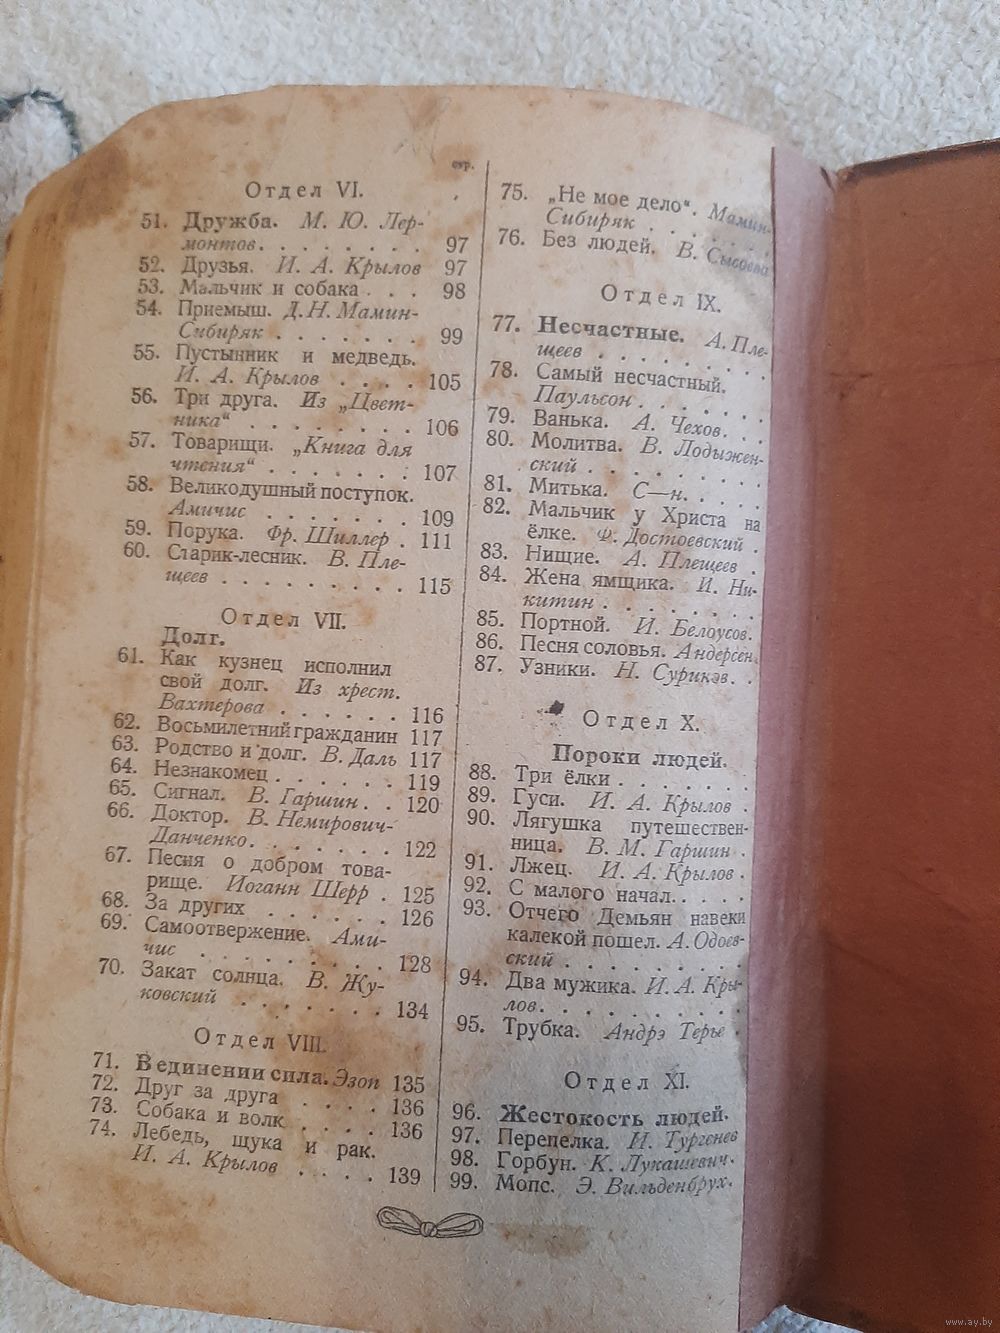 стр.
Отдел VI.
51. Дружба. М. Ю. Лер-
монтов. . . . . . . . 97
52. Друзья. И. А. Крылов 97
53. Мальчик и собака . . . 98
54. Приемыш. Д. Н. Мамин-
Сибиряк . . . . . . . 99
55. Пустынник и медведь.
И. А. Крылов . . . . 105
56. Три друга. Из „Цвет-
ника“ . . . . . . . . 106
57. Товарищи. „Книга для
чтения“ . . . . . . . 107
58. Великодушный поступок.
Амичис . . . . . . . 109
59. Порука. Фр. Шиллер . 111
60. Старик-лесник. В. Пле-
щеев . . . . . . . . 115
Отдел VII.
Долг.
61. Как кузнец исполнил
свой долг. Из хрест.
Вахтерова . . . . . . 116
62. Восьмилетний гражданин 117
63. Родство и долг. В. Даль 117
64. Незнакомец . . . . . . 119
65. Сигнал. В. Гаршин . . 120
66. Доктор. В. Немирович-
Данченко. . . . . . . 122
67. Песня о добром това-
рище. Иоганн Шерр . 125
68. За других . . . . . . 126
69. Самоотвержение. Ами-
чис . . . . . . . . . 128
70. Закат солнца. В. Жу-
ковский . . . . . . . 134
Отдел VIII.
71. В единении сила. Эзоп 135
72. Друг за друга . . . . 136
73. Собака и волк . . . . 136
74. Лебедь, щука и рак.
И. А. Крылов . . . . 139
75. „Не мое дело“. Мамин-
Сибиряк . . . . . .
76. Без людей. В. Сысоева
Отдел IX.
77. Несчастные. А. Пле-
щеев . . . . . . . .
78. Самый несчастный.
Паульсон . . . . . .
79. Ванька. А. Чехов. . .
80. Молитва. В. Лодыжен-
ский . . . . . . . .
81. Митька. С—н. . . . .
82. Мальчик у Христа на
ёлке. Ф. Достоевский .
83. Нищие. А. Плещеев .
84. Жена ямщика. И. Ни-
китин . . . . . . . .
85. Портной. И. Белоусов.
86. Песня соловья. Андерсен.
87. Узники. Н. Суриков. .
Отдел X.
Пороки людей.
88. Три ёлки . . . . . . .
89. Гуси. И. А. Крылов .
90. Лягушка путешествен-
ница. В. М. Гаршин .
91. Лжец. И. А. Крылов .
92. С малого начал. . . . .
93. Отчего Демьян навеки
калекой пошел. А. Одоев-
ский . . . . . . . . .
94. Два мужика. И. А. Кры-
лов. . . . . . . . . .
95. Трубка. Андрэ Терье .
Отдел XI.
96. Жестокость людей.
97. Перепелка. И. Тургенев
98. Горбун. К. Лукашевич.
99. Мопс. Э. Вильденбрух.
www.ay.by